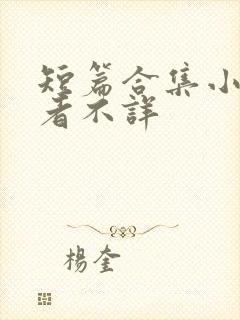 短篇合集小
者不詳
楊奎